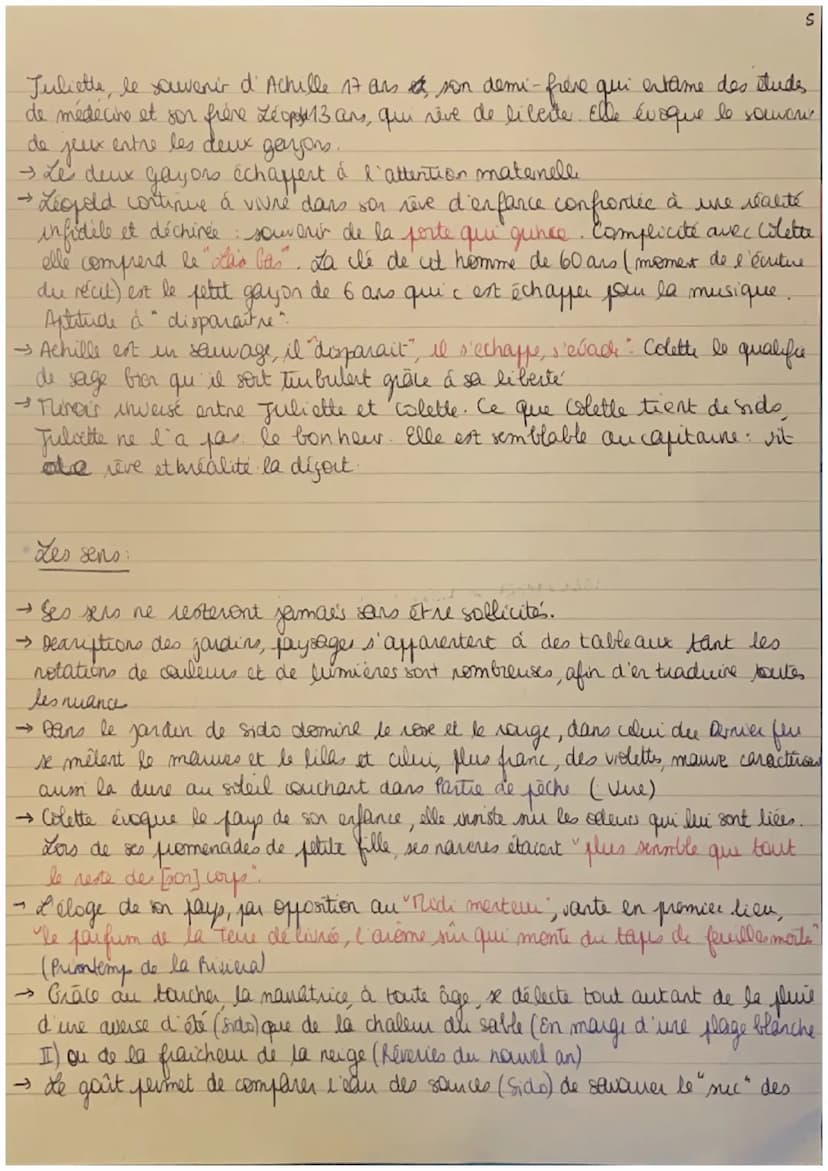 5
Juliette, le souvenir d'Achille 17 ans et, son demi-frère qui entame des études
de médecine et son frère Léopold 13 ans, qui rêve de liberté. Elle évoque le souvenir
de jeux entre les deux garçons.
→ Les deux garçons échappent à l'attention maternelle
→ Léopold continue à vivre dans son rêve d'enfance confrontée à une réalité
infidèle et déchirée : souvenir de la porte qui grince. Complicité avec Colette
elle comprend le "Là-bas". La clé de cet homme de 60 ans (moment de l'écriture
du récit) est le petit garçon de 6 ans qui c'est échapper pour la musique.
Aptitude à "disparaitre".
→ Achille est un sauvage, il "disparait", il s'echappe, s'evade". Colette le qualifie
de sage bien qu'il soit turbulent grâce à sa liberté
→ Miroir inversé entre Juliette et Colette. Ce que Colette tient de Sido,
Juliette ne l'a pas : le bonheur. Elle est semblable au capitaine : vit
rêve et la réalité la déçoit.
Les sens :
→ Ses sens ne resteront jamais sans être sollicités.
→ Descriptions des jardins, paysages s'apparentent à des tableaux tant les
notations de couleurs et de lumières sont nombreuses, afin d'en traduire toutes
les nuances
→ Dans le jardin de Sido domine le rose et le rouge, dans celui du Dernier feu
se mêlent le mauves et le lilas et celui, plus franc, des violettes, mauve caractérise
aussi la dune au soleil couchant dans Partie de pêche (Vue)
→ Colette évoque le pays de son enfance, elle insiste sur les odeurs qui lui sont liées.
Lors de ses promenades de petite fille, ses narines étaient "plus sensible que tout
le reste des [son] corps".
→ L'éloge de son pays, par opposition au "Midi menteur", vante en premier lieu,
"le parfum de la terre délivrée, l'arôme sûr qui monte du tapis de feuilles morte"
(Printemp de la Riviera)
→ Grâce au toucher, la narratrice, à toute âge, se délecte tout autant de la pluie
d'une averse d'été (Sido) que de la chaleur du sable (En marge d'une plage blanche
II) ou de la fraicheur de la neige (Rêveries du nouvel an)
→ Le goût permet de comparer l'eau des sources (Sido) de savourer le "suc" des